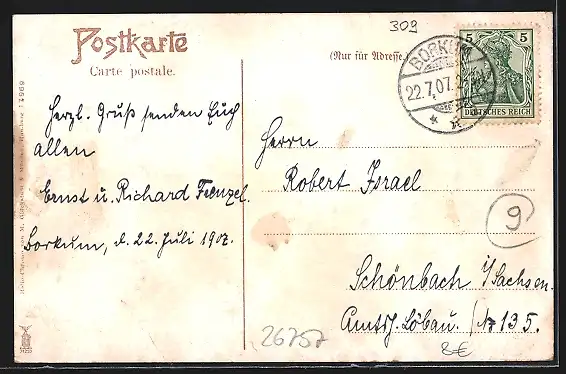 309
Postkarte
Carte postale.
(Nur für Adresse.)
5 5
DEUTSCHES REICH
BORKUM
22.7.07.
Herzl. Gruß senden Euch
allen
Ernst u. Richard Frenzel.
Borkum, d. 22. Juli 1907.
Herrn
Robert Israel
9
Schönbach i/Sachsen.
Amtsh. Löbau. / No 135.
26757
8€